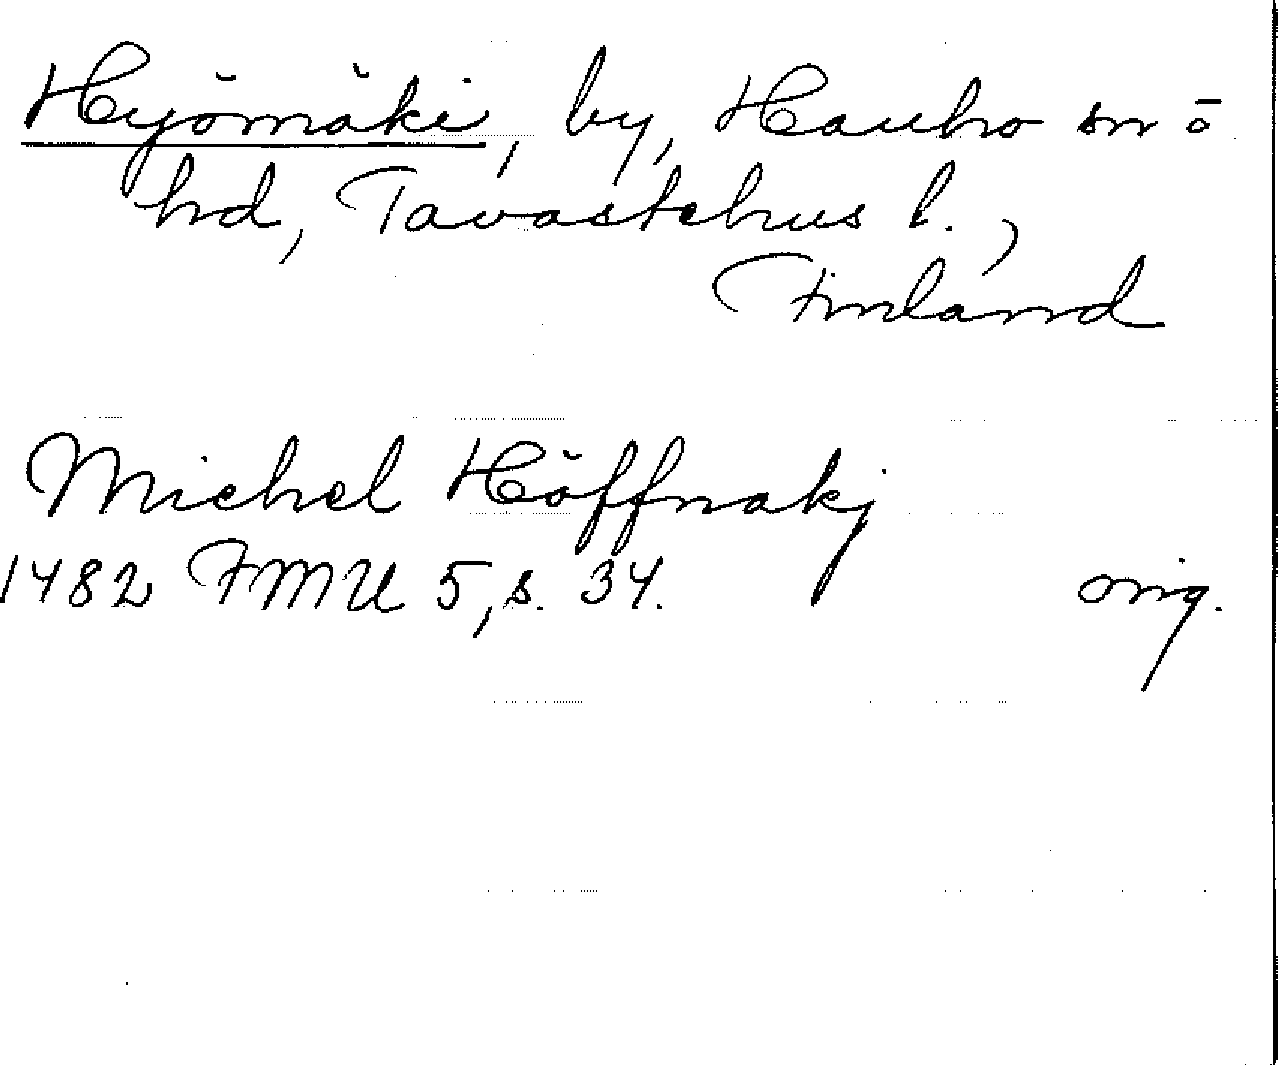 Hyömäki, by, Hauho sn ō
hd, Tavastehus l.,
Finland
Michel Höffnakj
1482 FMU 5, s. 34. orig.